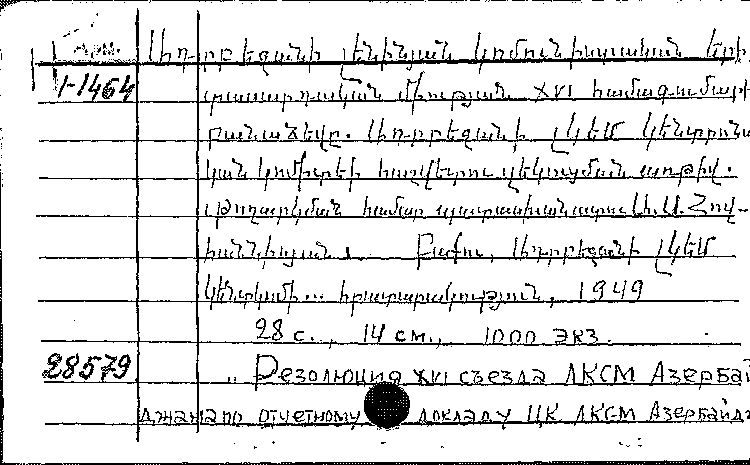 Ադրբեջանի լենինյան կոմունիստական երի-
1-1464 տասարդական միության XVI համագումարի
բանաձևը. Ադրբեջանի ԼԿԵՄ Կենտրոնա-
կան կոմիտեի հաշվետու զեկուցման առթիվ.
Թողարկման համար պատասխանատու Ա. Ա. Հով-
հաննիսյան. Բաքու, Ադրբեջանի ԼԿԵՄ
Կենտկոմի հրատարակություն, 1949
28 с., 14 см., 1000 экз.
28579 Резолюция XVI съезда ЛКСМ Азербай
джана по отчетному докладу ЦК ЛКСМ Азербайд